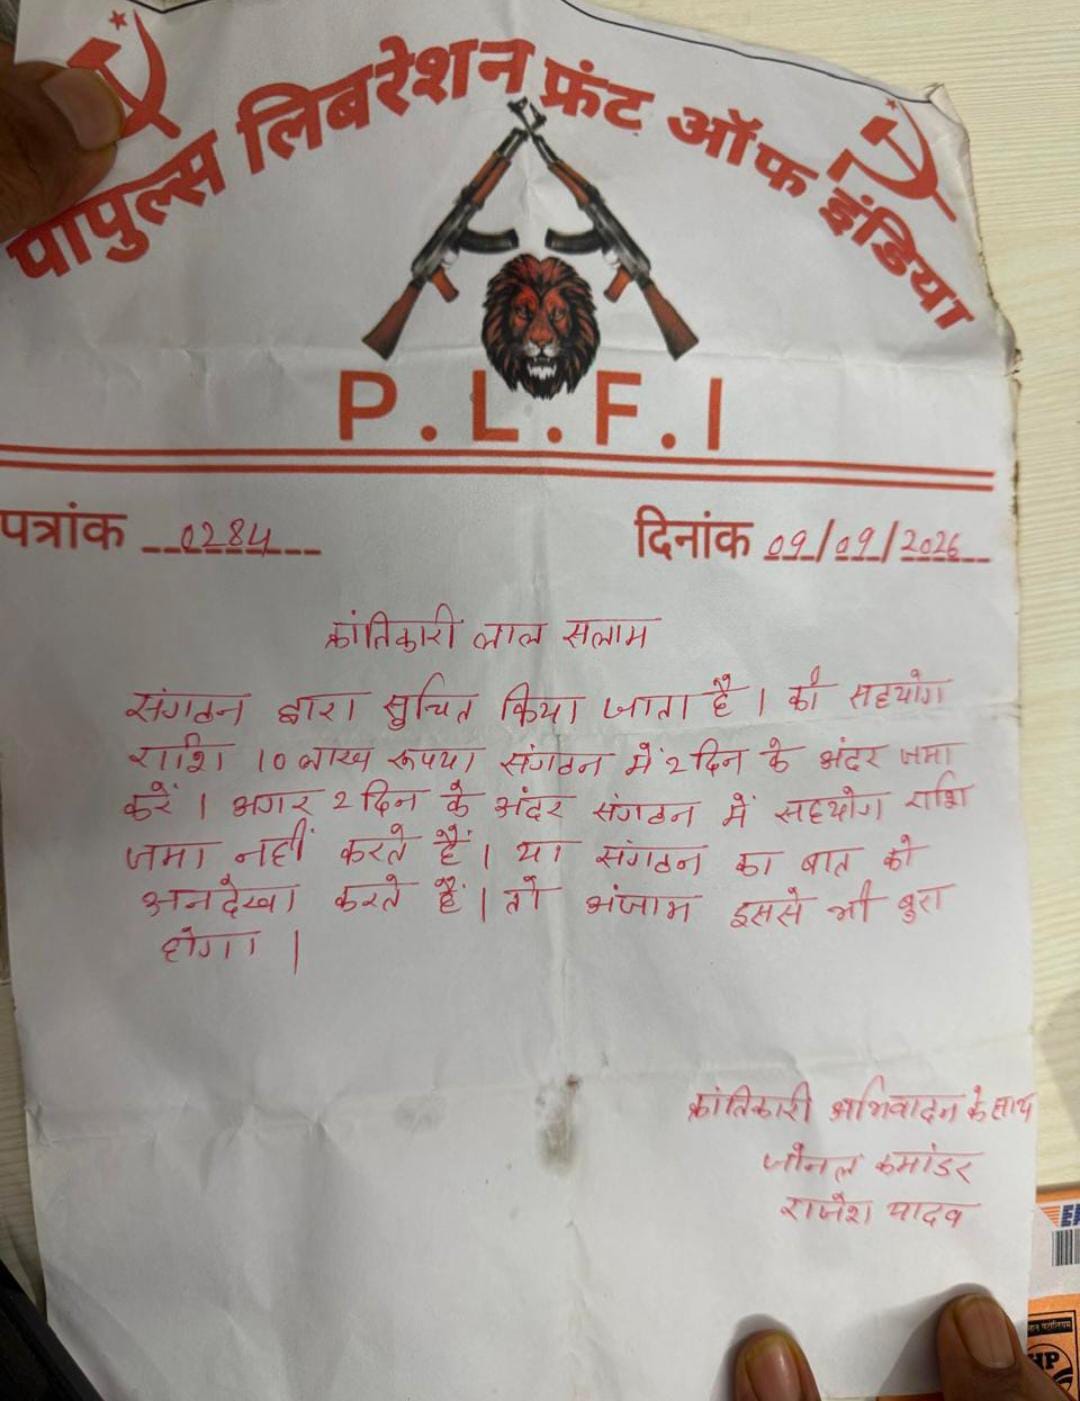 पीपुल्स लिबरेशन फ्रंट ऑफ इंडिया
P.L.F.I
पत्रांक 0284 दिनांक 09/09/2026
क्रांतिकारी लाल सलाम
संगठन द्वारा सुचित किया जाता है। की सहयोग
राशि 10 लाख रूपया संगठन में 2 दिन के अंदर जमा
करें। अगर 2 दिन के अंदर संगठन में सहयोग राशि
जमा नहीं करते हैं। या संगठन का बात को
अनदेखा करते हैं। तो अंजाम इससे भी बुरा
होगा।
क्रांतिकारी अभिवादन के साथ
जोनल कमांडर
राजेश यादव
HP